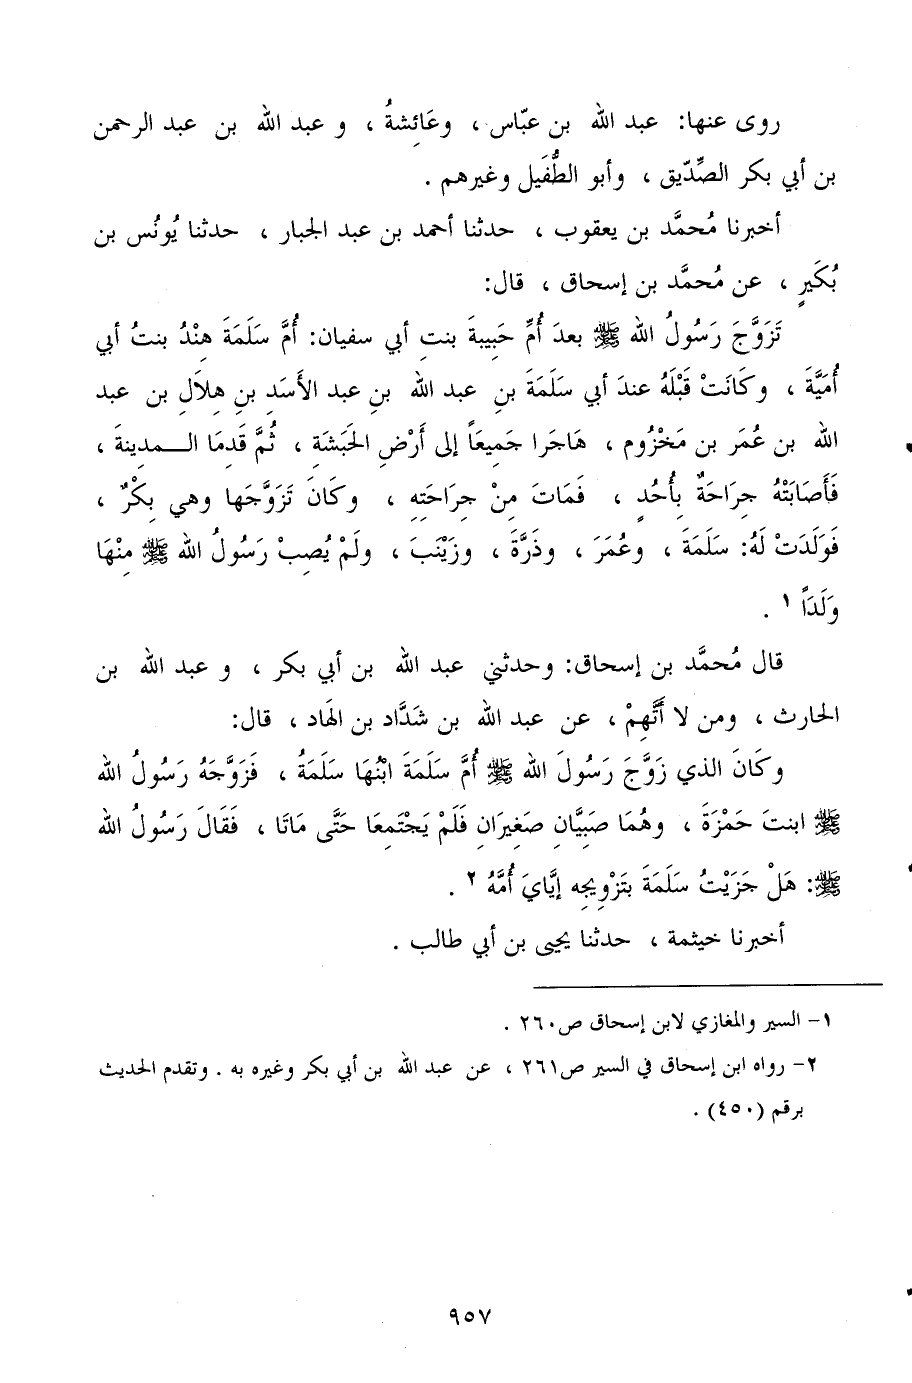 روى عنها: عبد الله بن عبّاس ، وعَائِشةُ ، و عبد الله بن عبد الرحمن
بن أبي بكر الصِّدّيق ، وأبو الطُّفَيل وغيرهم .
أخبرنا مُحمَّد بن يعقوب ، حدثنا أحمد بن عبد الجبار ، حدثنا يُونُس بن
بُكَيرٍ ، عن مُحمَّد بن إسحاق ، قال:
تَزَوَّجَ رَسُولُ الله ﷺ بعدَ أُمِّ حَبِيبةَ بنتِ أبي سفيان: أُمَّ سَلَمَةَ هِنْدُ بنتُ أبي
أُمَيَّةَ ، وكَانَتْ قَبْلَهُ عندَ أبي سَلَمَةَ بنِ عبد الله بنِ عبد الأَسَدِ بنِ هِلَالِ بن عبد
الله بن عُمَر بن مَخْزُوم ، هَاجَرا جَميعَاً إلى أَرْضِ الحَبَشَة ، ثُمَّ قَدِمَا الـــمدِينةَ ،
فَأَصَابَتْهُ جِراحَةٌ بِأُحُدٍ ، فَمَاتَ مِنْ جِرَاحَتِهِ ، وكَانَ تَزَوَّجَها وهي بِكْرٌ ،
فَوَلَدَتْ لَهُ: سَلَمَةَ ، وعُمَرَ ، وذَرَّةَ ، وزَيْنَبَ ، ولَمْ يُصِبْ رَسُولُ الله ﷺ مِنْهَا
وَلَدَاً ١ .
قال مُحمَّد بن إسحاق: وحدثني عبد الله بن أبي بكر ، و عبد الله بن
الحارث ، ومن لا أَتَّهِمْ ، عن عبد الله بن شَدَّاد بن الهَاد ، قال:
وكَانَ الذي زَوَّجَ رَسُولَ الله ﷺ أُمَّ سَلَمَةَ ابْنُهَا سَلَمَةُ ، فَزَوَّجَهُ رَسُولُ الله
ﷺ ابنتَ حَمْزَةَ ، وهُمَا صَبِيَّانِ صَغِيرَانِ فَلَمْ يَجْتَمِعَا حَتَّى مَاتَا ، فَقَالَ رَسُولُ الله
ﷺ: هَلْ جَزَيْتُ سَلَمَةَ بتَزْوِيجِه إيَّايَ أُمَّهُ ٢ .
أخبرنا خيثمة ، حدثنا يحيى بن أبي طالب .
١- السير والمغازي لابن إسحاق ص٢٦٠ .
٢- رواه ابن إسحاق في السير ص٢٦١ ، عن عبد الله بن أبي بكر وغيره به . وتقدم الحديث
برقم (٤٥٠) .
٩٥٧